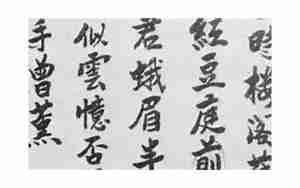 時樓閣
紅豆庭前
君蛾眉半
似雲憶否
手曾薰